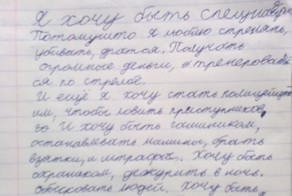 Я хочу быть спецназовцем
Потомушто я люблю стрелять,
убивать, драться. Получать
огромные деньги, и тренероваться
по стрелбе.
И ещё я хочу стать полицейцким
им, чтобы ловить приступников,
И хочу быть гаишником,
останавливать машины, брать
взятки, и штрафы. Хочу быть
охраником, дежурить в ночь.
людей, хочу быть